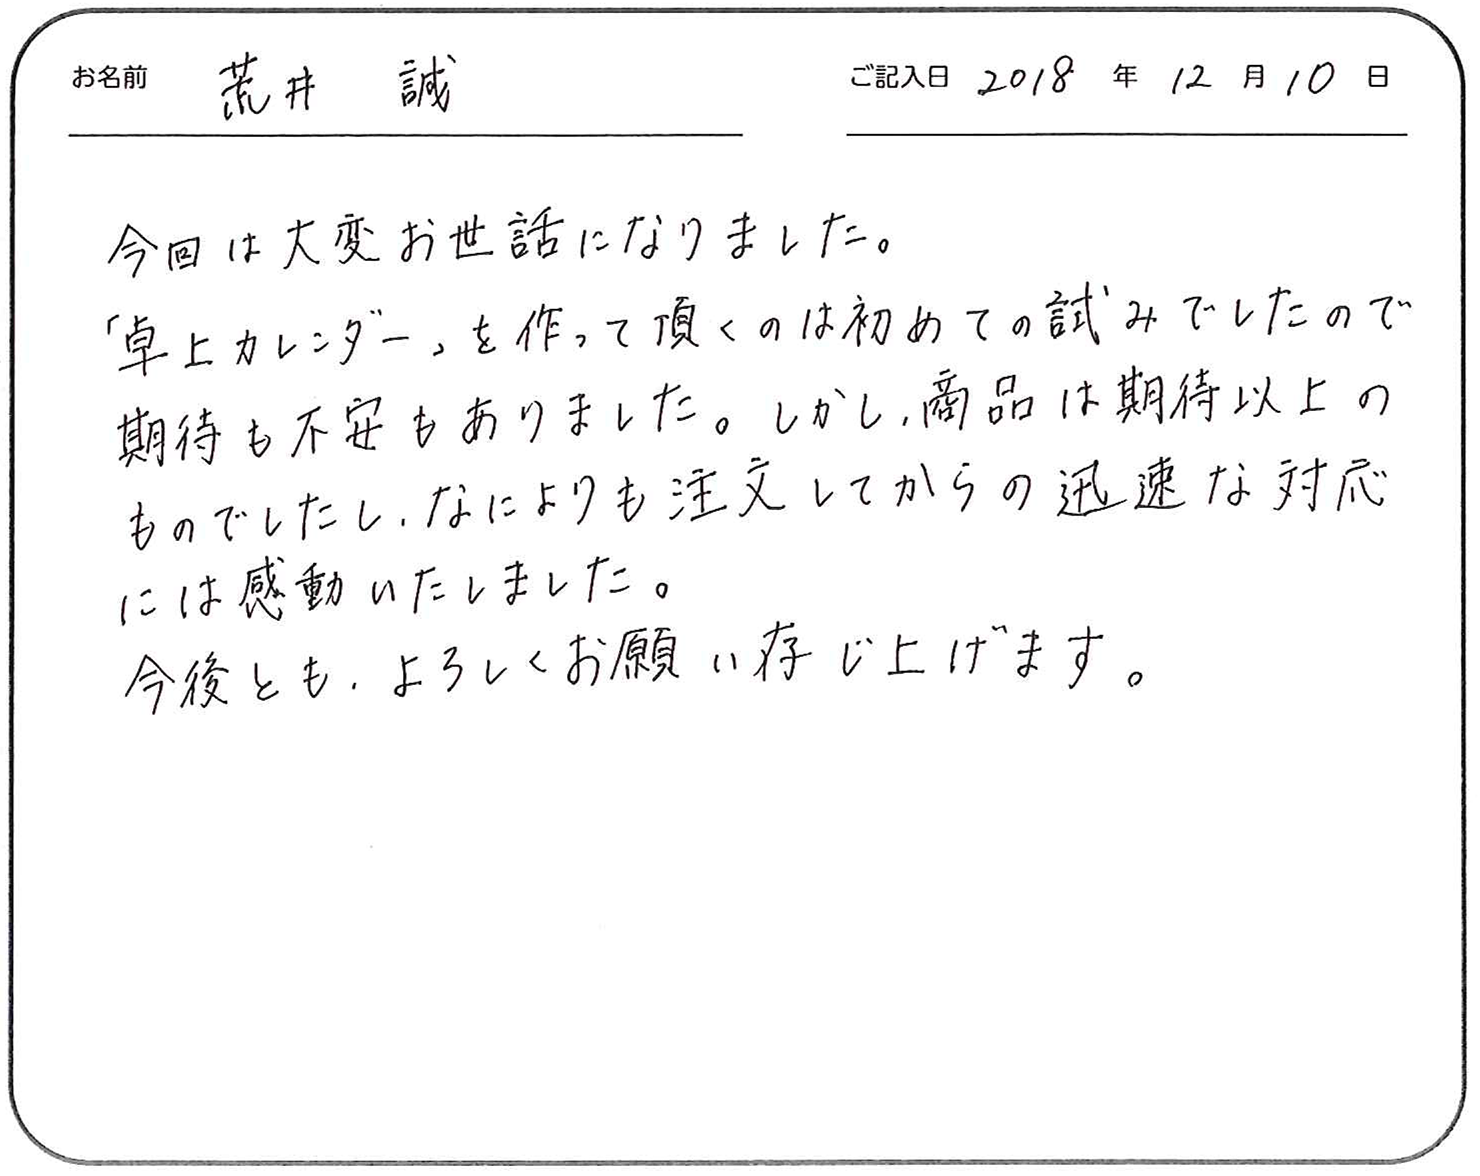 お名前 荒井 誠 ご記入日 2018 年 12 月 10 日
今回は大変お世話になりました。
「卓上カレンダー」を作って頂くのは初めての試みでしたので
期待も不安もありました。しかし、商品は期待以上の
ものでしたし、なによりも注文してからの迅速な対応
には感動いたしました。
今後とも、よろしくお願い存じ上げます。